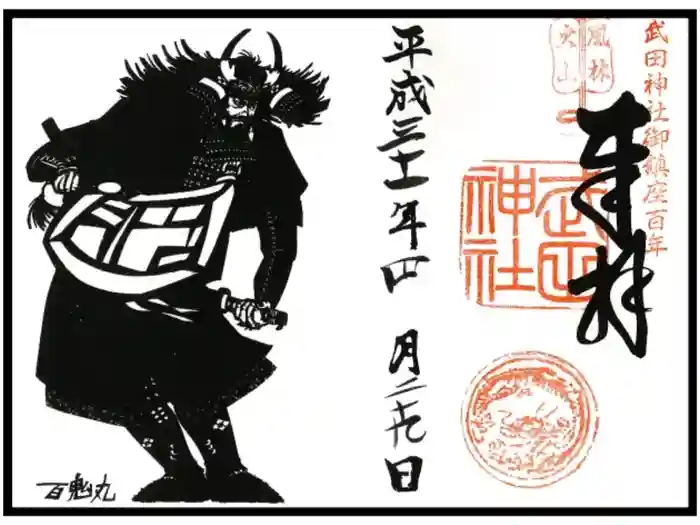 武田神社御鎮座百年
風林
火山
奉拝
武田
神社
平成三十一年四月二十九日
百鬼丸